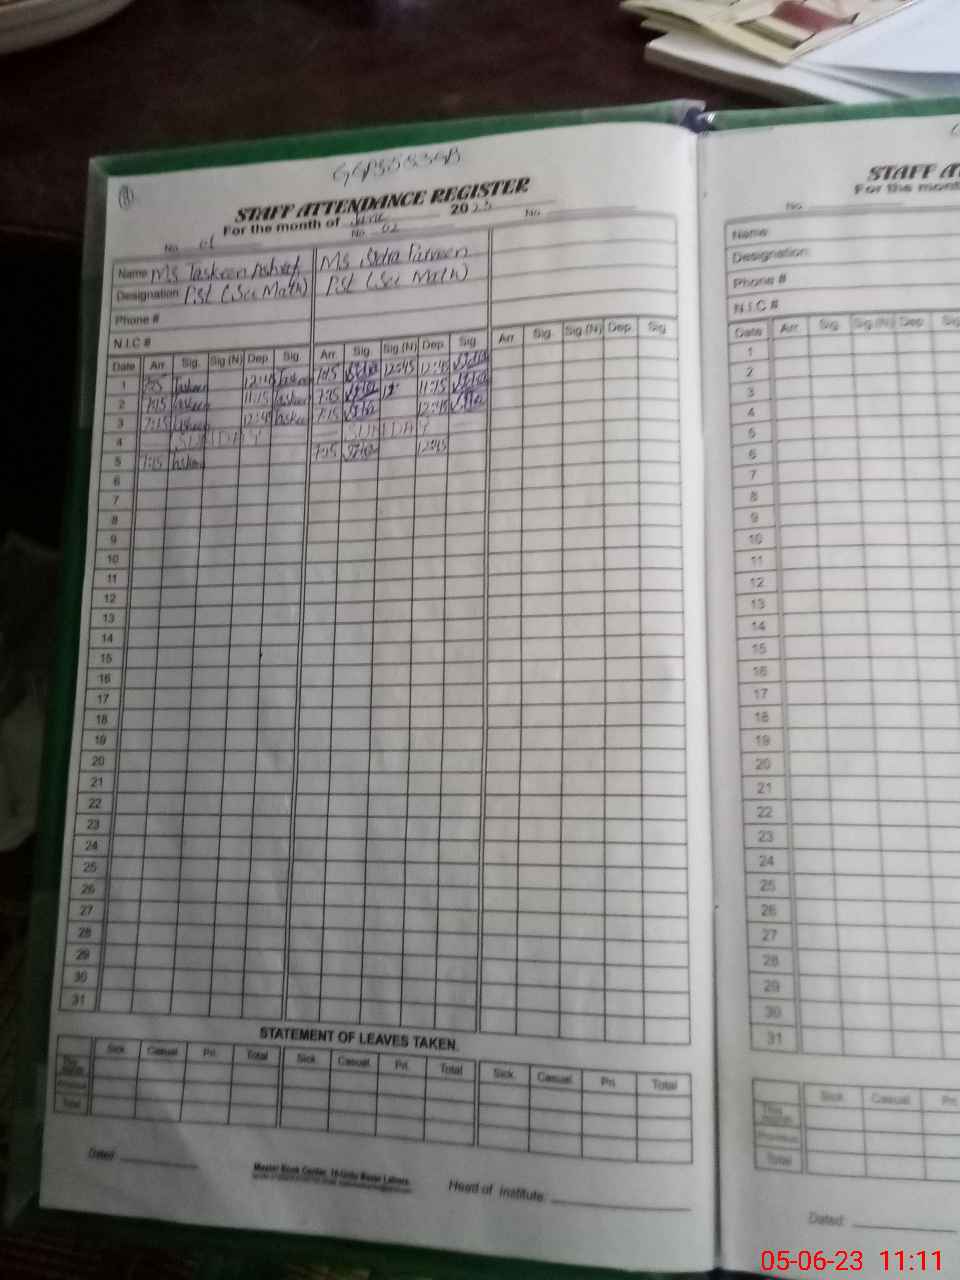 STAFF ATTENDANCE REGISTER
For the month of June 2023
No. 01 No. 02 No.
Name Ms Taskeen Ashraf Ms
Designation PST (Sci Math) PST (Sci Math)
Phone #
N.I.C #
Date Arr. Sig. Sig (N) Dep. Sig. Arr. Sig. Sig (N) Dep. Sig. Arr. Sig. Sig (N) Dep. Sig
1 Taskeen 12:45 Taskeen 12:45 12:45
2 7:15 Taskeen 11:15 Taskeen 7:15 11:15
3 7:15 Taskeen 12:45 Taskeen 7:15 12:45
4 SUNDAY SUNDAY
5 7:15 7:15 12:45
6
7
8
9
10
11
12
13
14
15
16
17
18
19
20
21
22
23
24
25
26
27
28
29
30
31
STATEMENT OF LEAVES TAKEN.
Sick. Casual. Pri. Total Sick. Casual. Pri. Total Sick. Casual. Pri. Total
Total
Dated:
Master Book Center, Urdu Bazar Lahore.
Head of Institute:
STAFF
For the mont
No.
Name
Designation:
Phone #
N.I.C #
Date Arr. Sig. Sig (N) Dep. Sig
1
2
3
4
5
6
7
8
9
10
11
12
13
14
15
16
17
18
19
20
21
22
23
24
25
26
27
28
29
30
31
Sick. Casual. Pri.
This
Previous
Total
Dated:
05-06-23 11:11